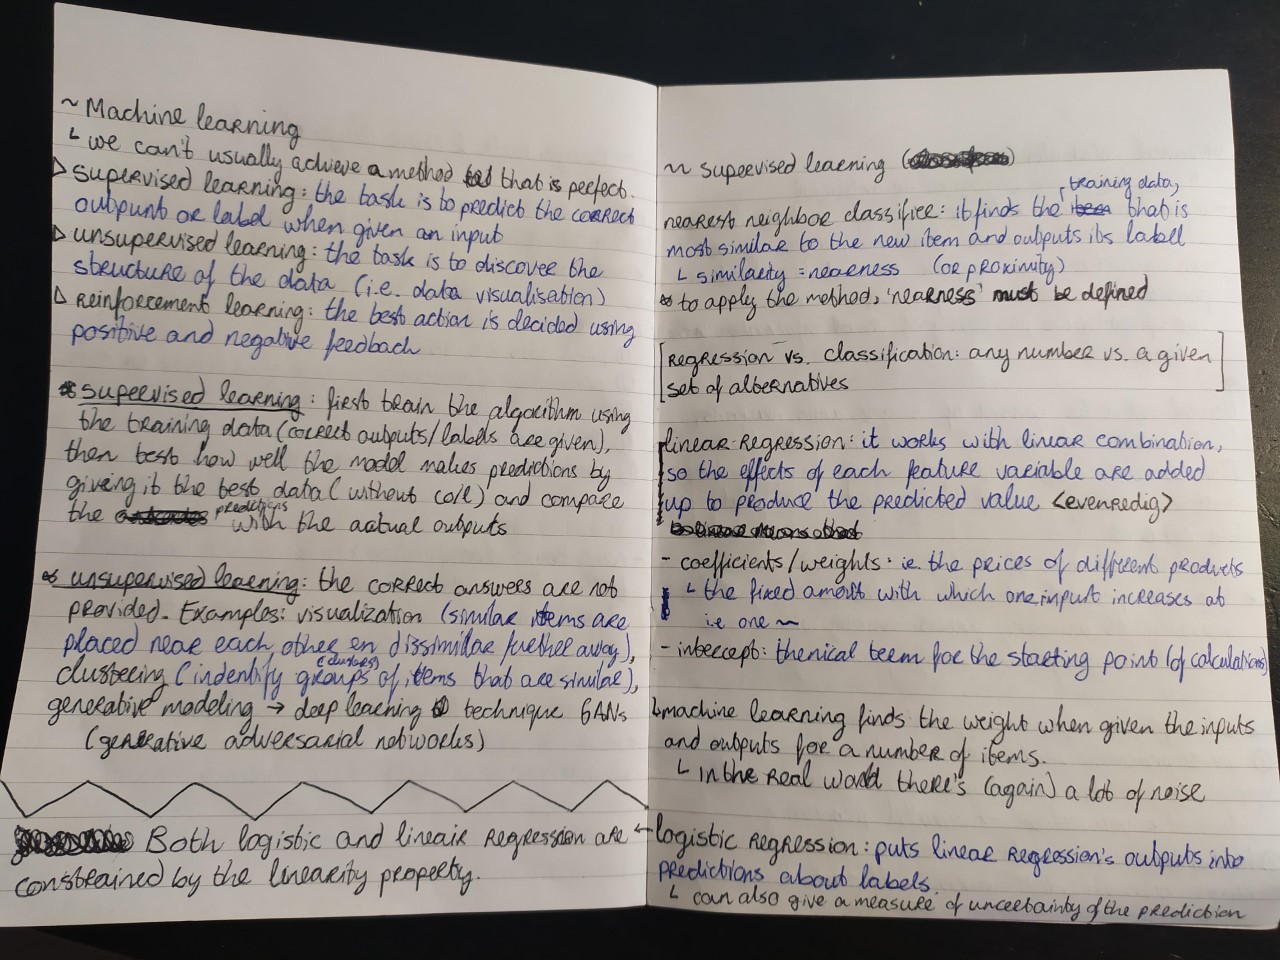 ~ Machine learning
└ we can't usually achieve a method that is perfect.
▷ supervised learning: the task is to predict the correct
outpunt or label when given an input
▷ unsupervised learning: the task is to discover the
structure of the data (i.e. data visualisation)
▷ Reinforcement learning: the best action is decided using
positive and negative feedback
* supervised learning: first train the algorithm using
the training data (correct outputs/labels are given),
then test how well the model makes predictions by
giving it the test data (without co/e) and compare
the predictions with the actual outputs
* unsupervised learning: the correct answers are not
provided. Examples: visualization (similar items are
placed near each other en dissimilar further away),
clustering (indentify groups (clusters) of items that are similar),
generative modeling → deep learning technique GANs
(generative adversarial networks)
Both logistic and lineair regression are
constrained by the linearity property.
~ supervised learning
nearest neighbor classifier: it finds the training data, that is
most similar to the new item and outputs its labell
└ similarity = nearness (or proximity)
* to apply the method, 'nearness' must be defined
[Regression vs. classification: any number vs. a given
set of alternatives]
linear regression: it works with linear combination,
so the effects of each feature variable are added
up to produce the predicted value <evenredig>
- coefficients/weights: ie. the prices of different products
└ the fixed amount with which one input increases at
i.e one ~
- intercept: technical term for the starting point (of calculations)
└ machine learning finds the weight when given the inputs
and outputs for a number of items.
└ in the real world there's (again) a lot of noise
← logistic regression: puts linear regression's outputs into
predictions about labels.
└ can also give a measure of uncertainty of the prediction